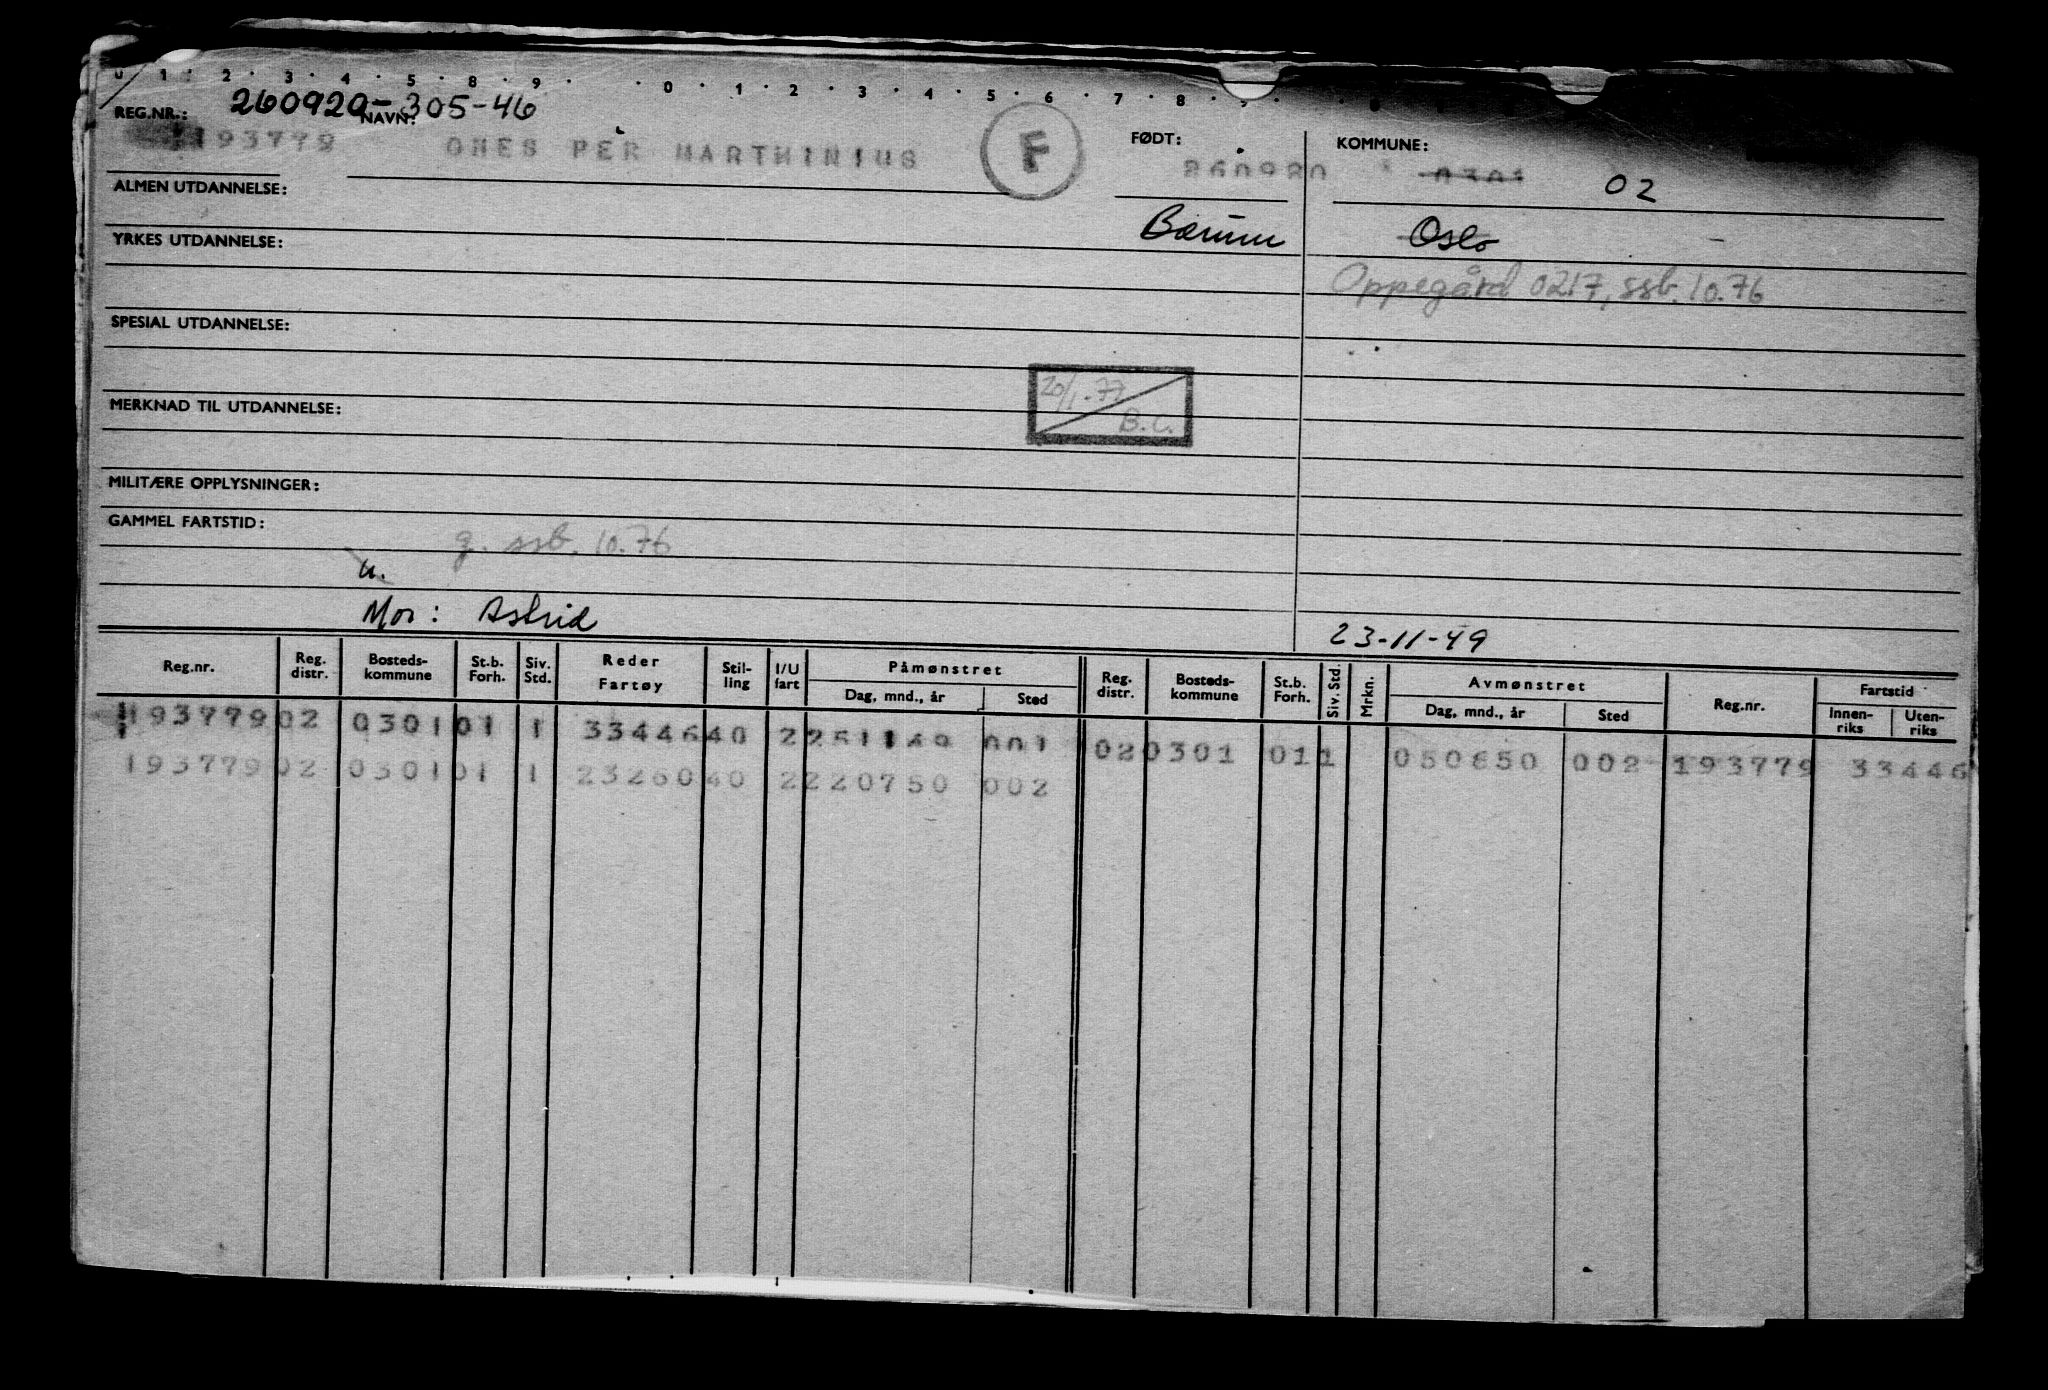 0 1 · 2 · 3 · 4 · 5 · 8 · 9 · · 0 · 1 · 2 · 3 · 4 · 5 · 6 · 7 · 8 ·
REG.NR.: 260920-305-46 NAVN:
193779 ONES PER MARTHINIUS F FØDT: 260920 KOMMUNE: 0301 02
ALMEN UTDANNELSE:
Bærum Oslo
YRKES UTDANNELSE:
Oppegård 0217, ssb. 10.76
SPESIAL UTDANNELSE:
20/1-77
B.C.
MERKNAD TIL UTDANNELSE:
MILITÆRE OPPLYSNINGER:
GAMMEL FARTSTID:
g. ssb. 10.76
u.
Mor: Astrid
23-11-49
Reg.nr. Reg. distr. Bosteds-kommune St.b. Forh. Siv. Std. Reder Fartøy Stil-ling I/U fart Påmønstret Dag, mnd., år Sted Reg. distr. Bosteds-kommune St.b. Forh. Siv. Std. Mrkn. Avmønstret Dag, mnd., år Sted Reg.nr. Fartstid Innen-riks Uten-riks
193779 02 0301 01 1 33446 40 2 251149 001 02 0301 01 1 050650 002 193779 33446
193779 02 0301 01 1 23260 40 2 220750 002